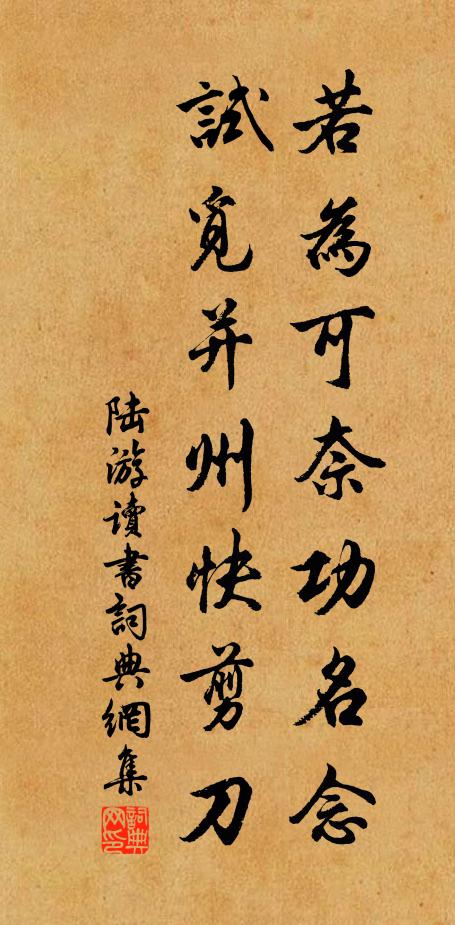 若為可奈功名念
試覓并州快剪刀
陸游讀書詞典網集
詞典網印